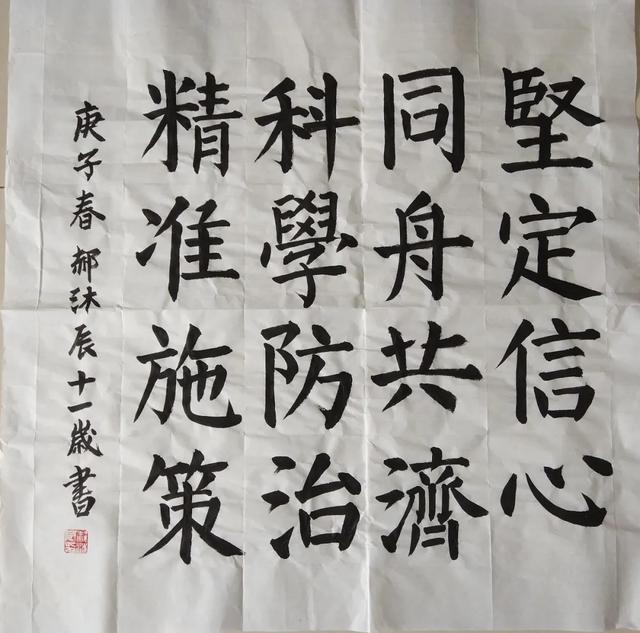 堅定信心
同舟共濟
科學防治
精准施策
庚子春郝沐辰十一歲書